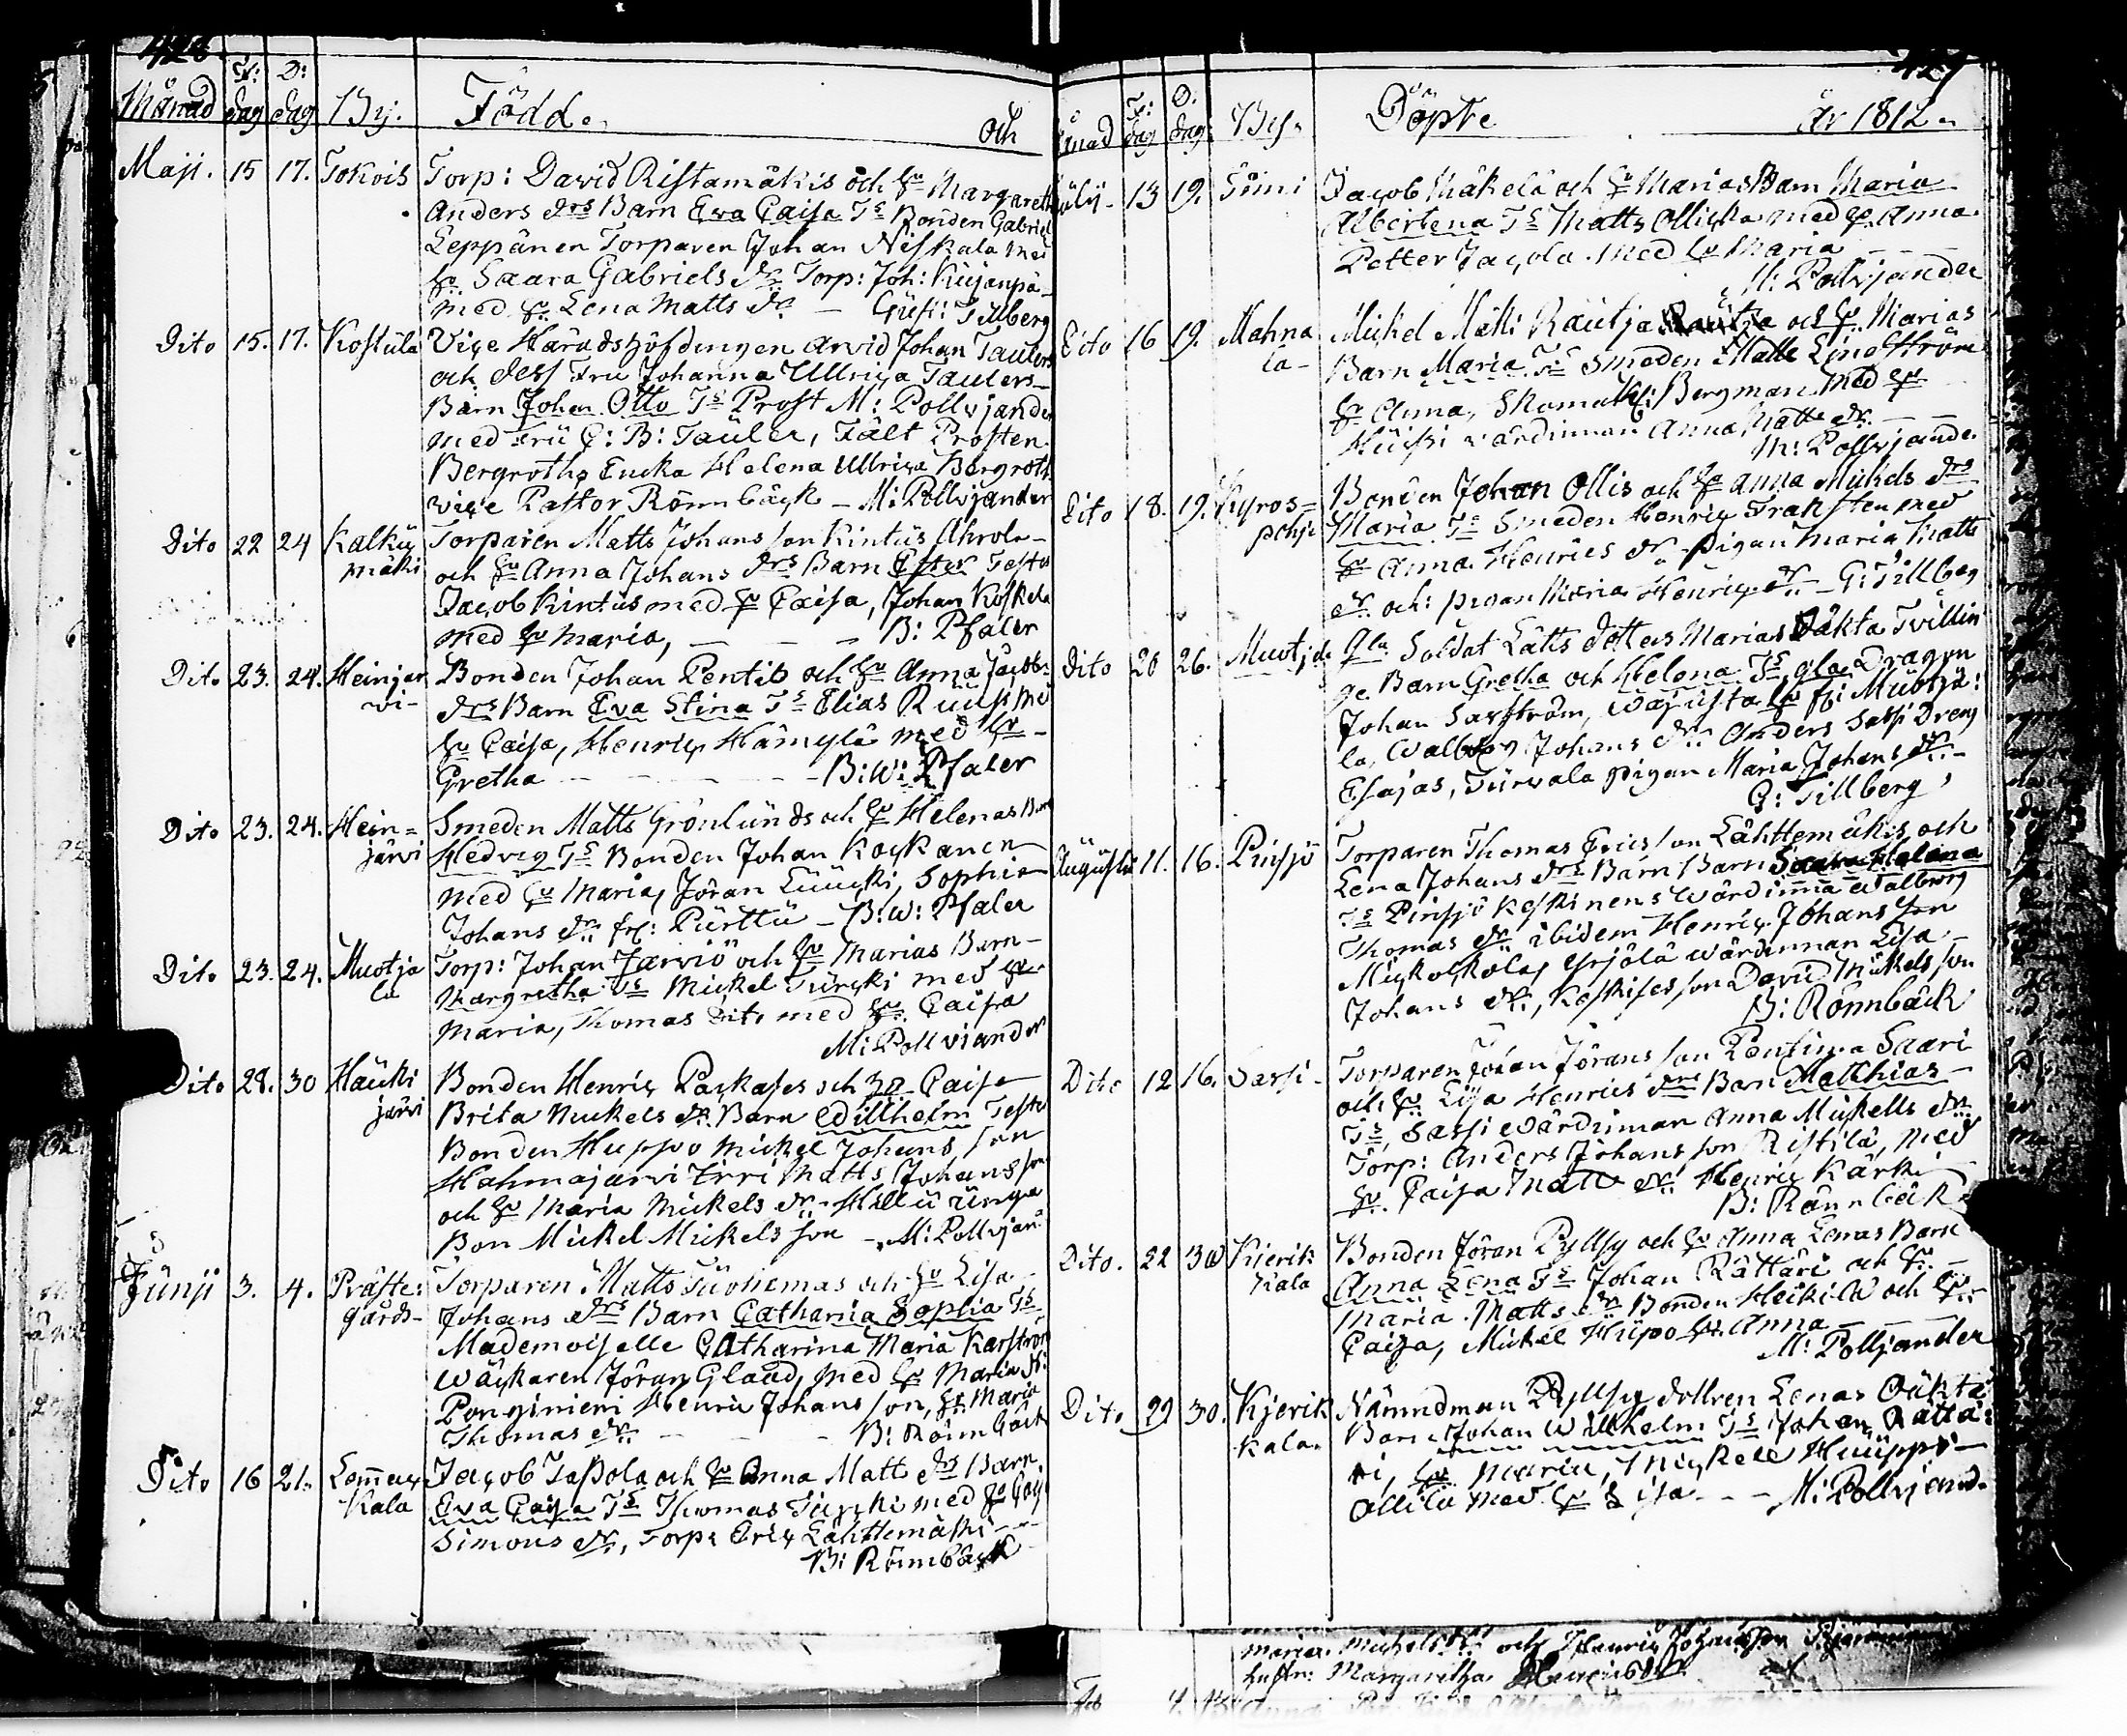 428
Månad F: dag D: dag By. Född. och
Maji. 15 17. Tokois Torp: David Ristamäkis och Hu Margareth
Anders drs Barn Eva Caisa Ts Bonden Gabriel
Leppänen Torparen Johan Niskala med
Hu Saara Gabriels dr Torp: Joh: Kujanpä
med Hu Lena Matts dr — Gust: Tillberg
Dito 15. 17. Koskula Vice Häradshöfdingen Arvid Johan Taulers
och dess Fru Johanna Ullrica Taulers
Barn Johan Otto Ts Prost M: Pollvjander
med Fru C: B: Tauler, Fält Prosten
Bergroths Encka Helena Ullrica Bergroth
vice Pastor Rönnbäck — M: Pollvjander
Dito 22 24 Kalku mäki Torparen Matts Johans son Kintus
och Hu Anna Johans drs Barn Ester Testes
Jacob Kintus med Hu Caisa, Johan Koskela
med Hu Maria, — — B: Pfaler
Dito 23. 24. Heinjar vi- Bonden Johan Pentis och Hu Anna Jacobs
drs Barn Eva Stina Ts Elias
Hu Caisa, Henric Hämylä med Hu
Gretha — — B: W: Pfaler
Dito 23. 24. Hein= järvi Smeden Matts Grönlunds och Hu Helenas Barn
Hedvig Ts Bonden Johan Kockanen
med Hu Maria, Jöran Luucki, Sophia
Johans dr frl: Purttu — B: W: Pfaler
Dito 23. 24. Muotja la Torp: Johan Järviö och Hu Marias Barn
Margretha Ts Mickel Turcki med Hu
Maria, Thomas Dito med Hu Caisa
M: Pollviander
Dito 28. 30 Hauki järvi Bonden Henric Packases och Hu Caisa
Brita Mickels dr Barn Willhelm Testes
Bonden Huppo Mickel Johans son
Hahmajarvi Erri Matts Johans son
och Hu Maria Mickels dr
Bon Mickel Mickels son — M: Pollvjan
Junji 3. 4. Präste: gårds- Torparen Matts Tuohemas och Hu Lisa
Johans drs Barn Catharina Sophia Ts
Mademoiselle Catharina Maria Karström
Wäckaren Jöran Glaad, med Hu Maria
Ponginiemi Henric Johans son, Hu Maria
Thomas dr — — B: Rönnbäck
Dito 16 21. Lammas kala Jacob Tapola och Hu Anna Matts drs Barn
Eva Caisa Ts Thomas Turcki med Hu Caj
Simons dr, Torp: Eric Lähttemäki —
B: Rönnbäck
429
Månad F: dag D. dag By. Döpte år 1812.
July. 13 19. Jacob Mäkelä och Hu Marias Barn Maria
Albertena Ts Matts Ollicka med Hu Anna
Petter Jacola med Hu Maria —
M: Pollvjander
Dito 16 19. Mahna la- Mickel Matti Rautja och Hu Marias
Barn Maria Ts Smeden Matts Lindström
Hu Anna, Skomak: Bergman med Hu
Huiki värdinnan Anna Matts dr
M: Pollvjander
Dito 18. 19. Kyros= pohja Bonden Johan Ollis och Hu Anna Mickels drs
Maria Ts Smeden Henric Traksten med
Hu Anna Henrics dr pigan Maria Matts
dr och: pigan Maria Henrics dr — G: Tillberg
Dito 20 26. Muotjala Gla Soldat Lätts dotters Marias Oäkta Tvillin
ge Barn Gretha och Helena Ts gla Dragon
Johan Saxström,
la, Walborg Johans dr Anders Sassi Dreng
Esajas, Turvala pigan Maria Johans dr
G: Tillberg
Augusti 11. 16. Pinsjö Torparen Thomas Erics son Lähttemäkis och
Lena Johans drs Barn Barn Saara Helena
Ts Pinsjö Koskinens Wärdinna Walborg
Thomas dr ibidem Henric Johans son
Yrjölä wärdinnan Lisa
Johans dr, David Mickels son
B: Rönnbäck
Dito 12 16. Sassi- Torparen Johan Jörans son Saari
och Hu Lisa Henrics drs Barn Matthias
Ts, Sassi Wärdinnan Anna Mickells dr
Torp: Anders Johans son Ristilä, med
Hu Caisa Matts dr Henric Kärki
B: Rännbäck
Dito. 22 30 Kierik kala Bonden Jöran Pyllsy och Hu Anna Lenas Barn
Anna Lena Ts Johan Rättäri och Hu
Maria Matts dr Bonden Heikilä och Hu
Caisa, Mickel Huipo Hu Anna —
M: Pollvjander
Dito 29 30. Kjerik kala. Nämndman Pyllsy dottren Lenas Oäkta
Barn Johan Willhelm Ts Johan Rättä:
ri, Hu Maria, Mickell Huuppo
Ollila med Hu Lisa — M: Pollvjand
Maria Michels dr och Henric Johansson
Margaretha Henricsdr